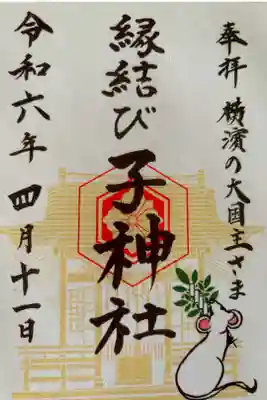 奉拝 横濱の大国主さま
縁結び子神社
令和六年 四月十一日